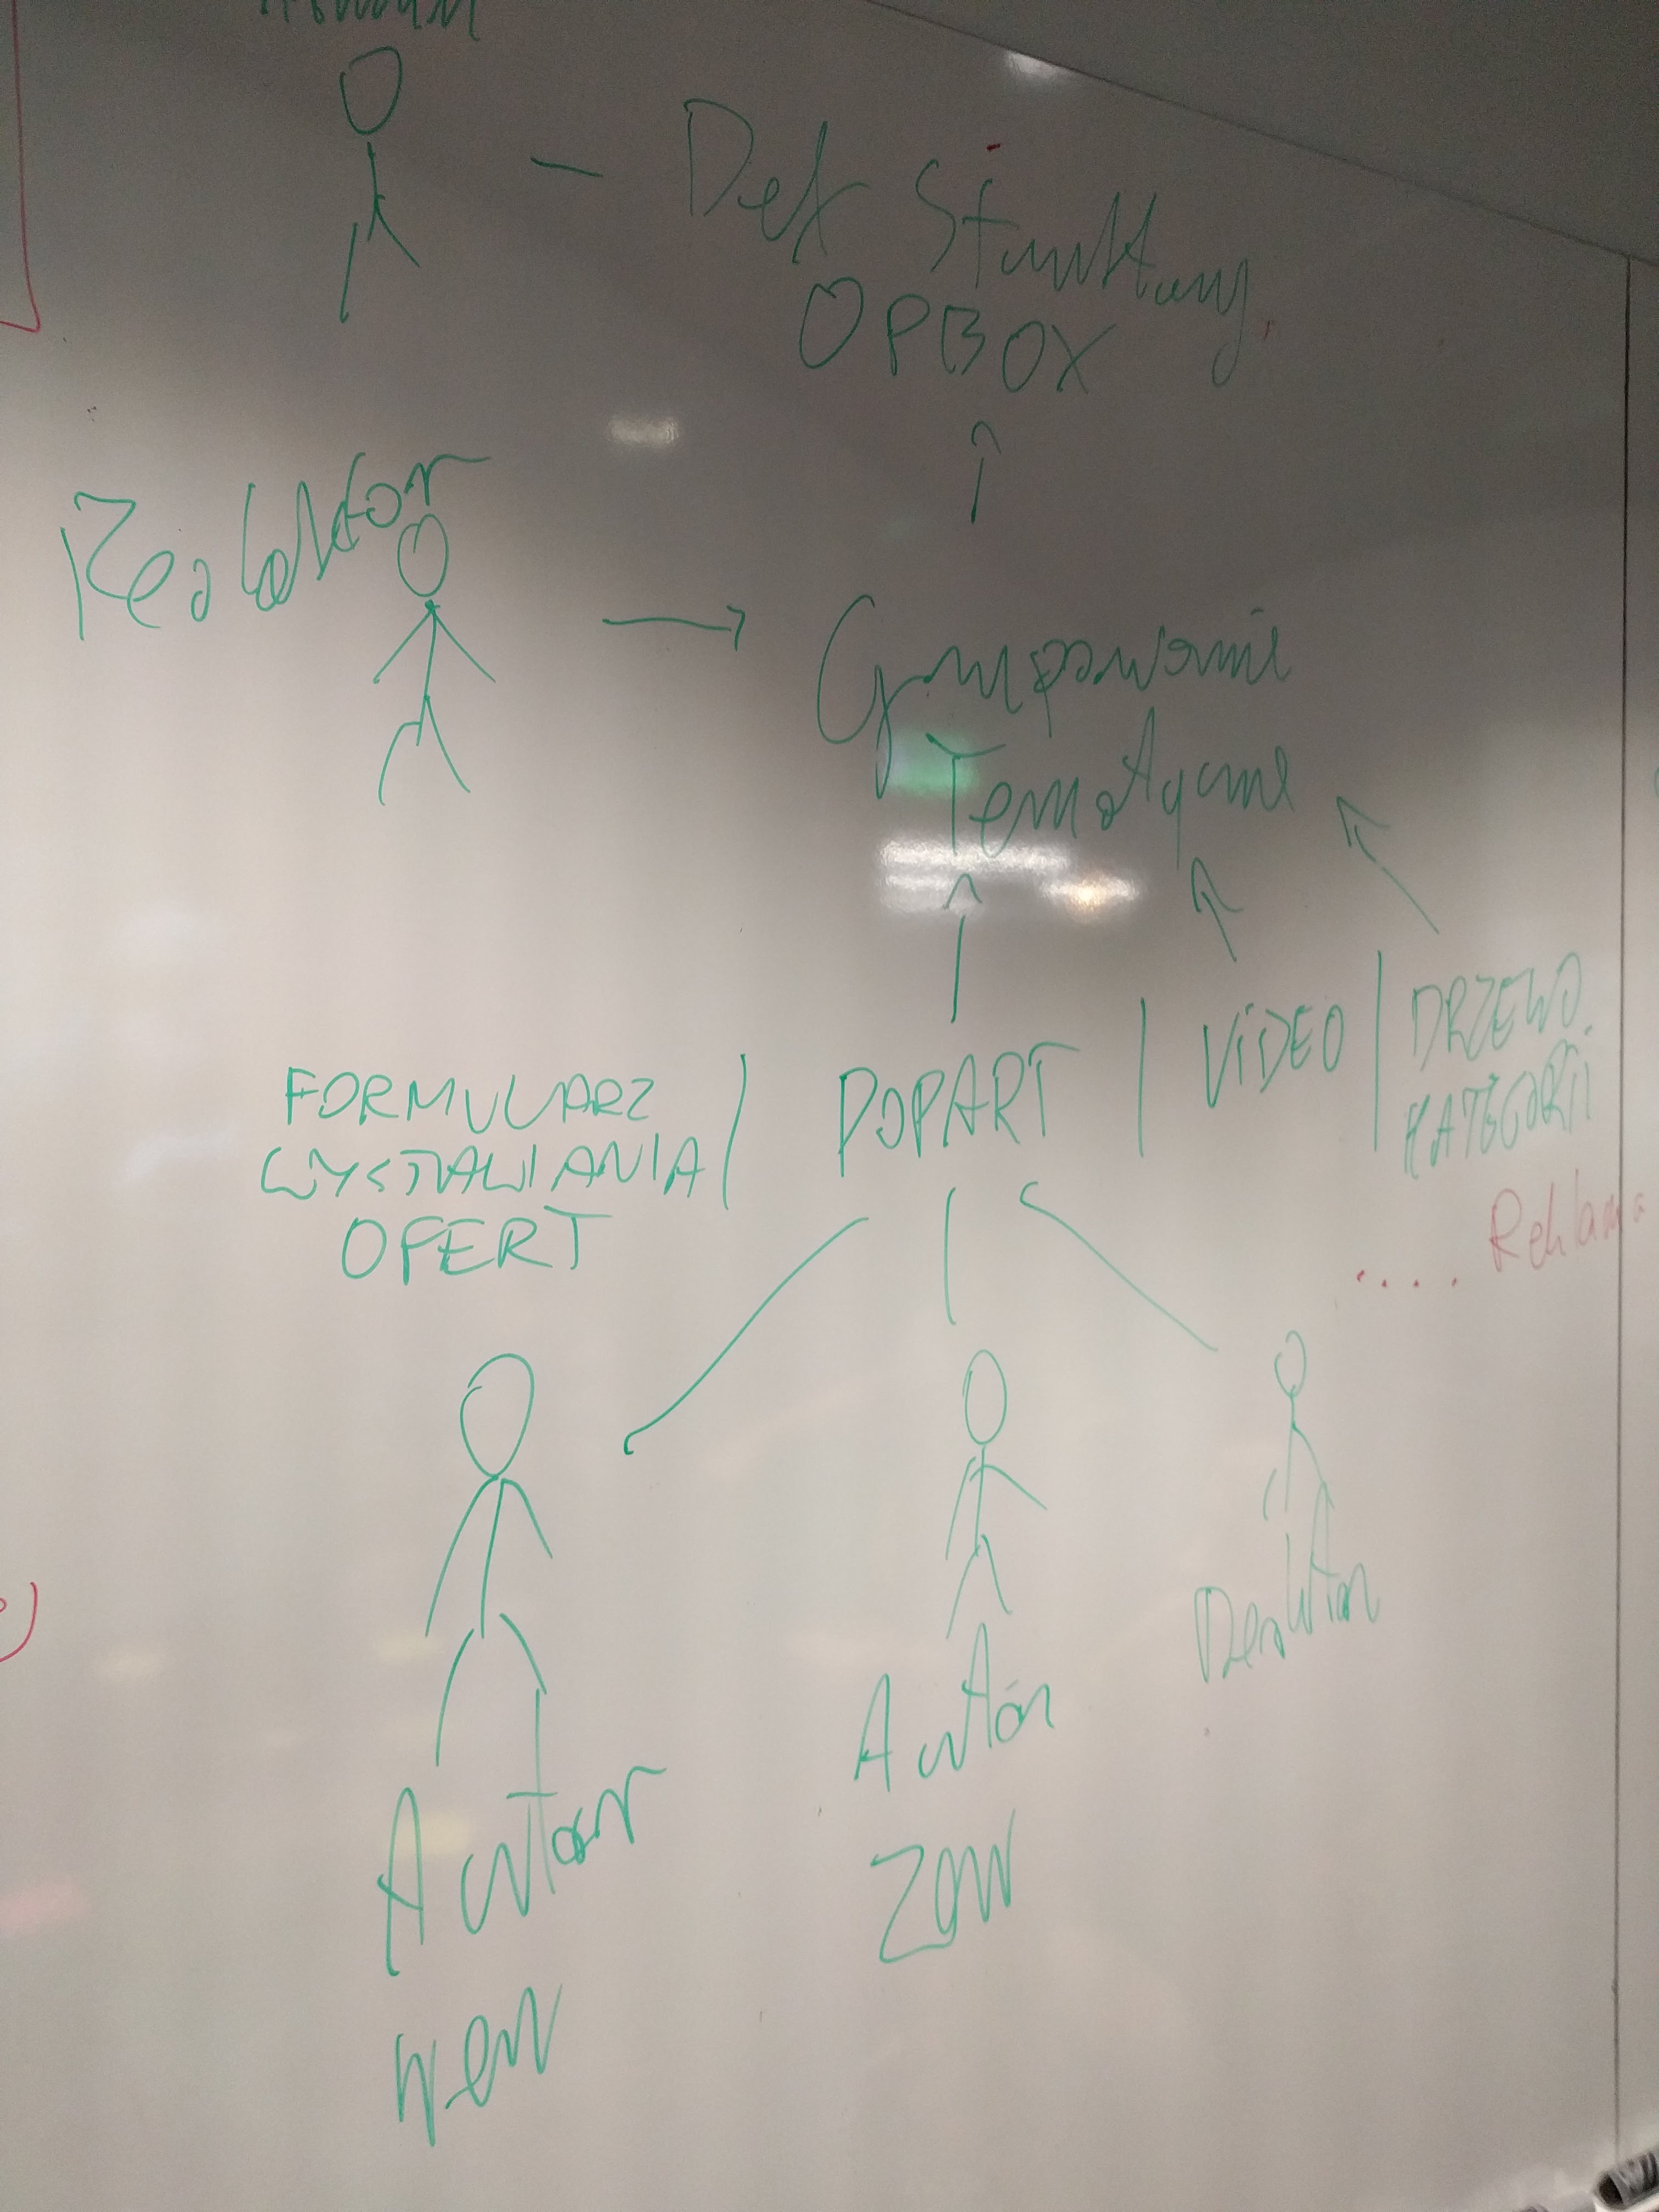 Def Struktury
OPBOX
Redaktor
Grupowanie
Tematyczne
FORMULARZ
WYSTAWIANIA
OFERT
POPART
VIDEO
DRZEWO
KATEGORII
.... Reklama
Redaktor
Autor
Zew
Autor
wew